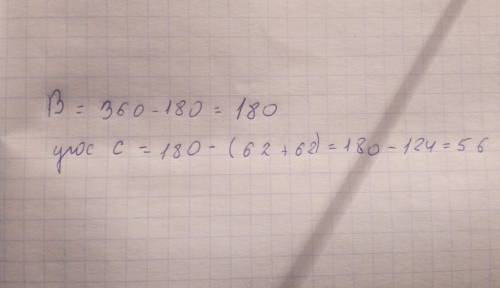 B = 360 - 180 = 180
угос C = 180 - (62 + 62) = 180 - 124 = 56